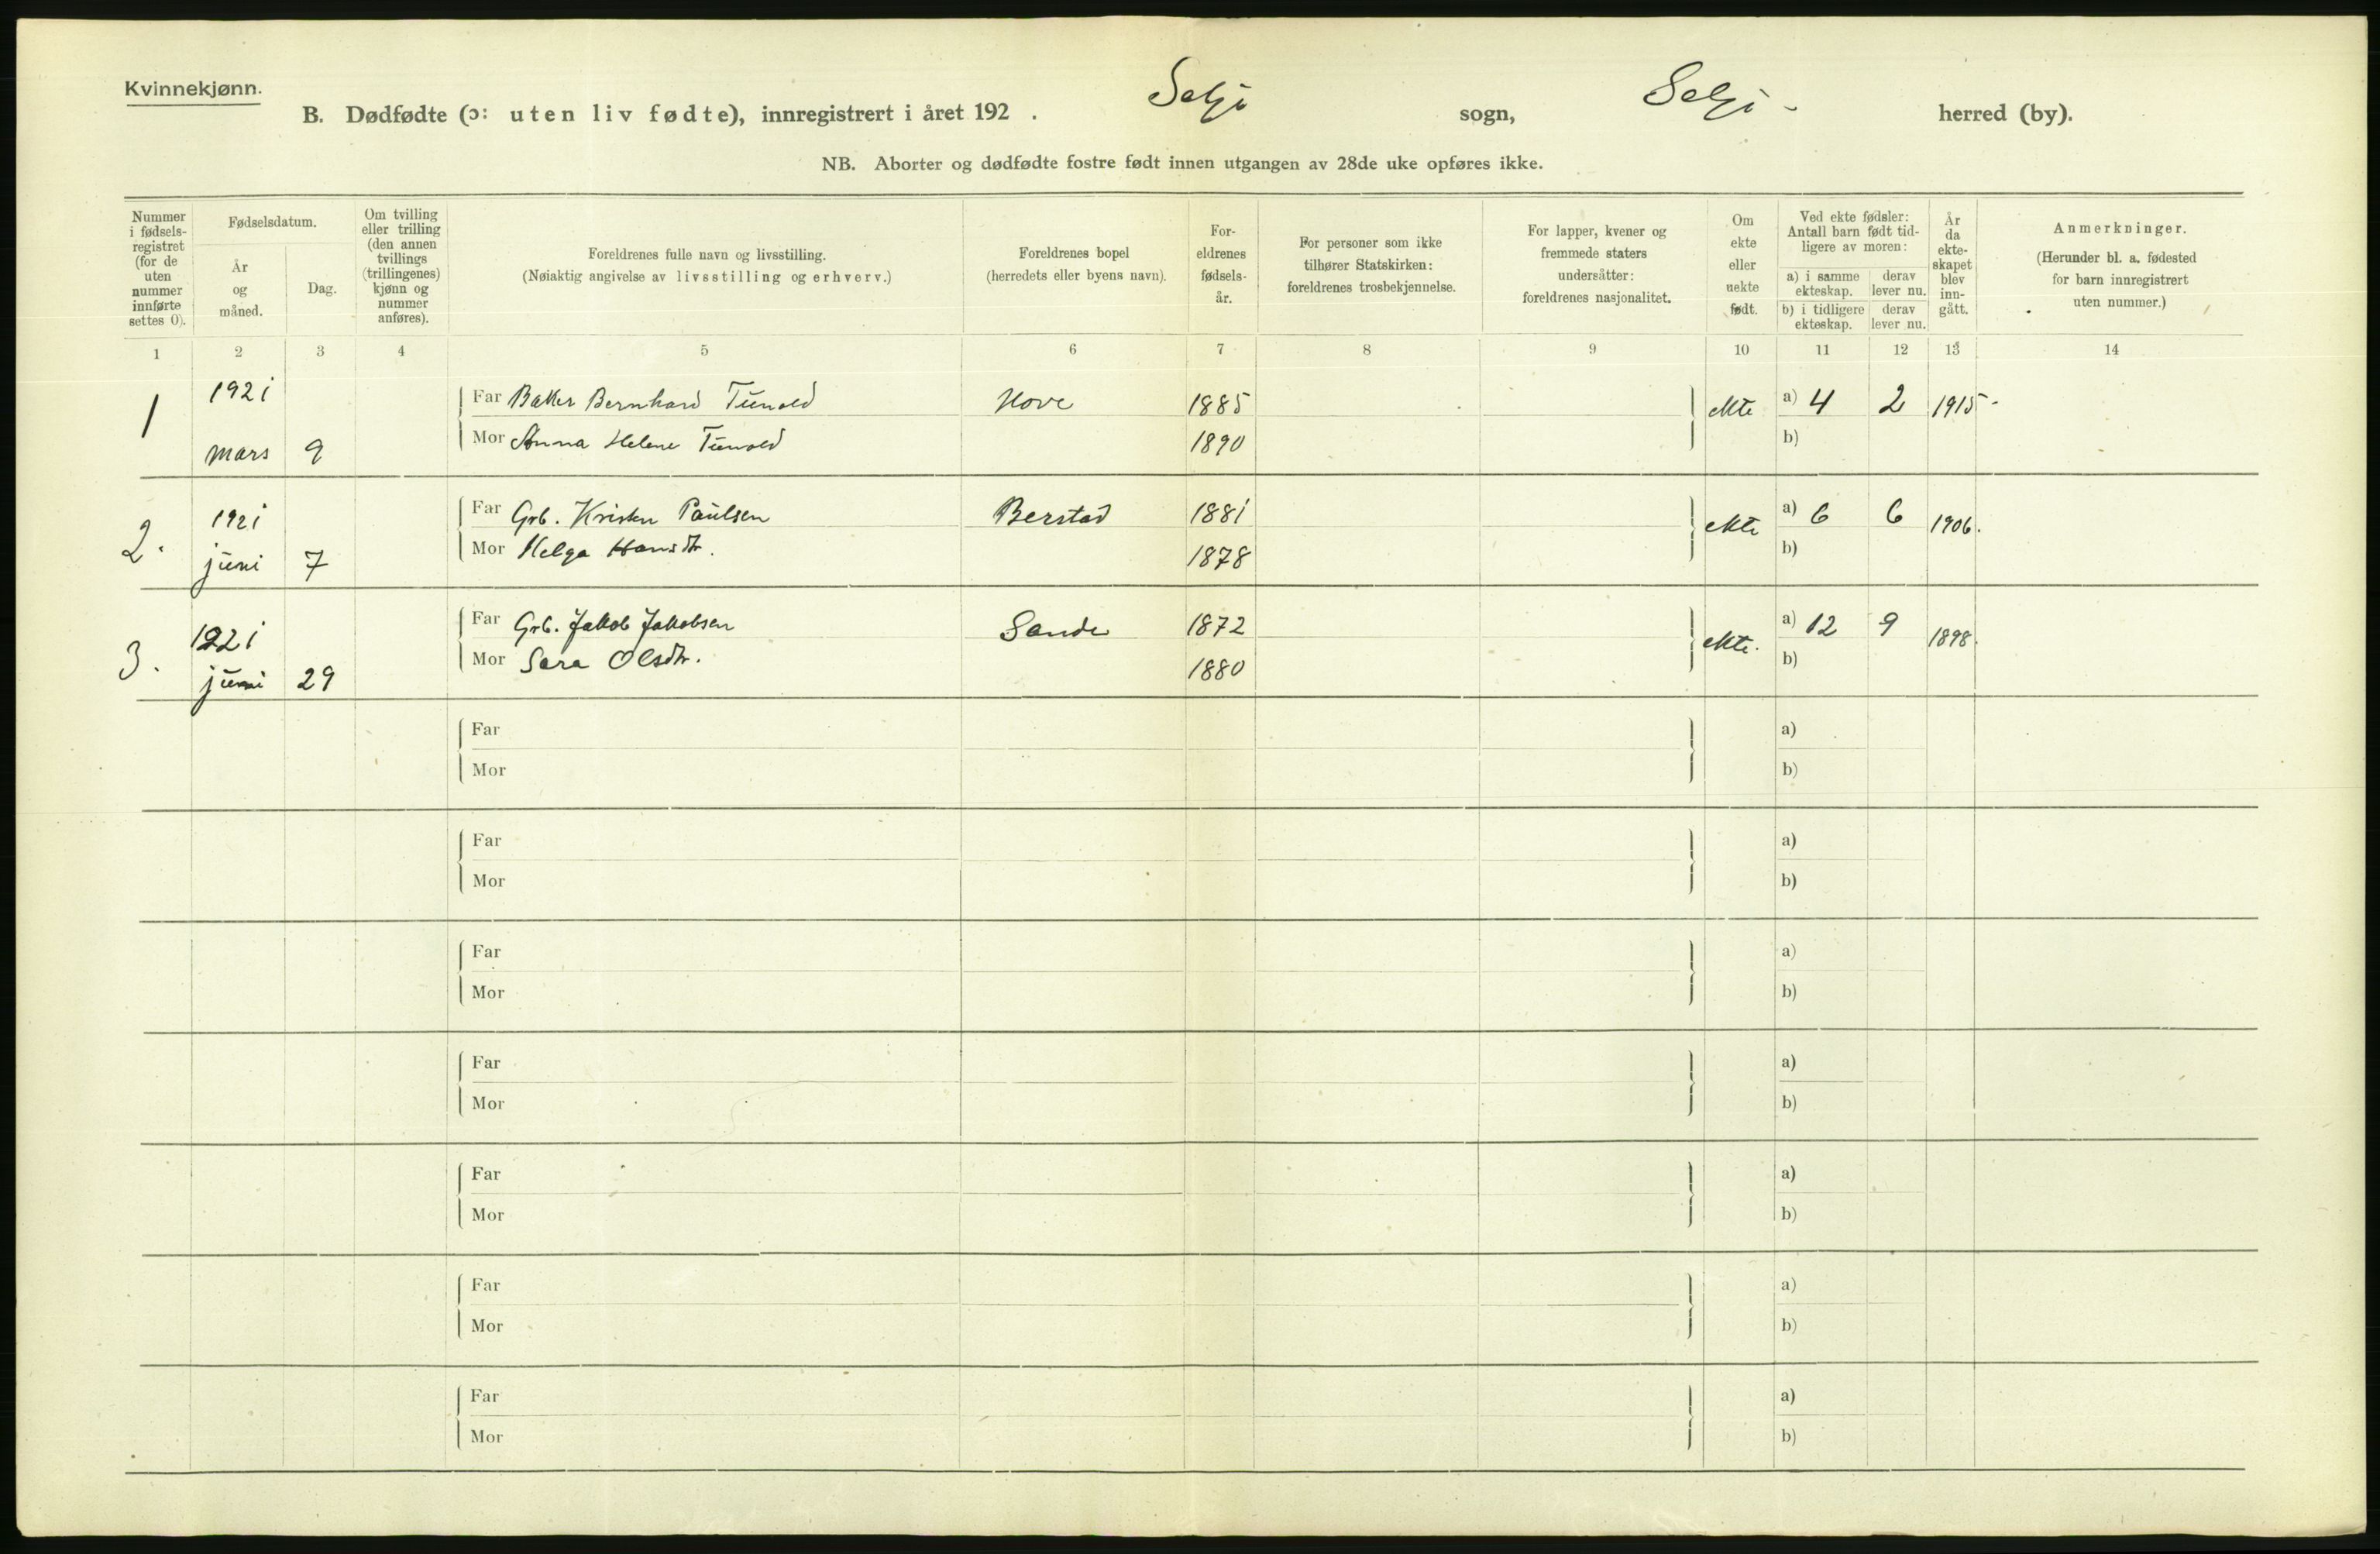 Kvinnekjønn.
B. Dødfødte (ɔ: uten liv fødte), innregistrert i året 192 . Selje sogn, Selje - herred (by).
NB. Aborter og dødfødte fostre født innen utgangen av 28de uke opføres ikke.
Nummer i fødsels-registret (for de uten nummer innførte settes 0).
Fødselsdatum.
År og måned.
Dag.
Om tvilling eller trilling (den annen tvillings (trillingenes) kjønn og nummer anføres).
Foreldrenes fulle navn og livsstilling.
(Nøiaktig angivelse av livsstilling og erhverv.)
Foreldrenes bopel
(herredets eller byens navn).
For-eldrenes fødsels-år.
For personer som ikke tilhører Statskirken: foreldrenes trosbekjennelse.
For lapper, kvener og fremmede staters undersåtter: foreldrenes nasjonalitet.
Om ekte eller uekte født.
Ved ekte fødsler: Antall barn født tid-ligere av moren:
a) i samme ekteskap.
derav lever nu.
b) i tidligere ekteskap.
derav lever nu.
År da ekte-skapet blev inn-gått.
Anmerkninger.
(Herunder bl. a. fødested for barn innregistrert uten nummer.)
1 2 3 4 5 6 7 8 9 10 11 12 13 14
1 1921 Far Baker Bernhard Tunold Hove 1885 ekte a) 4 2 1915 -
mars 9 Mor Anna Helene Tunold 1890 b)
2. 1921 Far Grb. Kristen Paulsen Berstad 1881 ekte a) 6 6 1906.
juni 7 Mor Helga Hansdtr. 1878 b)
3. 1921 Far Grb. Jakob Jakobsen Sande 1872 ekte. a) 12 9 1898.
juni 29 Mor Sara Olsdtr. 1880 b)
Far a)
Mor b)
Far a)
Mor b)
Far a)
Mor b)
Far a)
Mor b)
Far a)
Mor b)
Far a)
Mor b)
Far a)
Mor b)